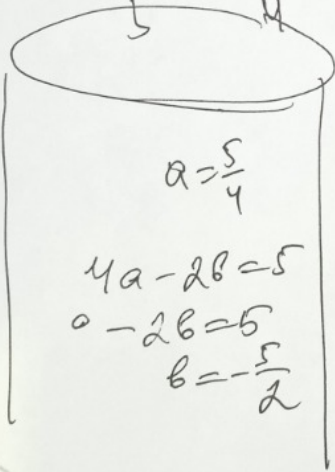 a = 5/4
4a - 2b = 5
0 - 2b = 5
b = - 5/2